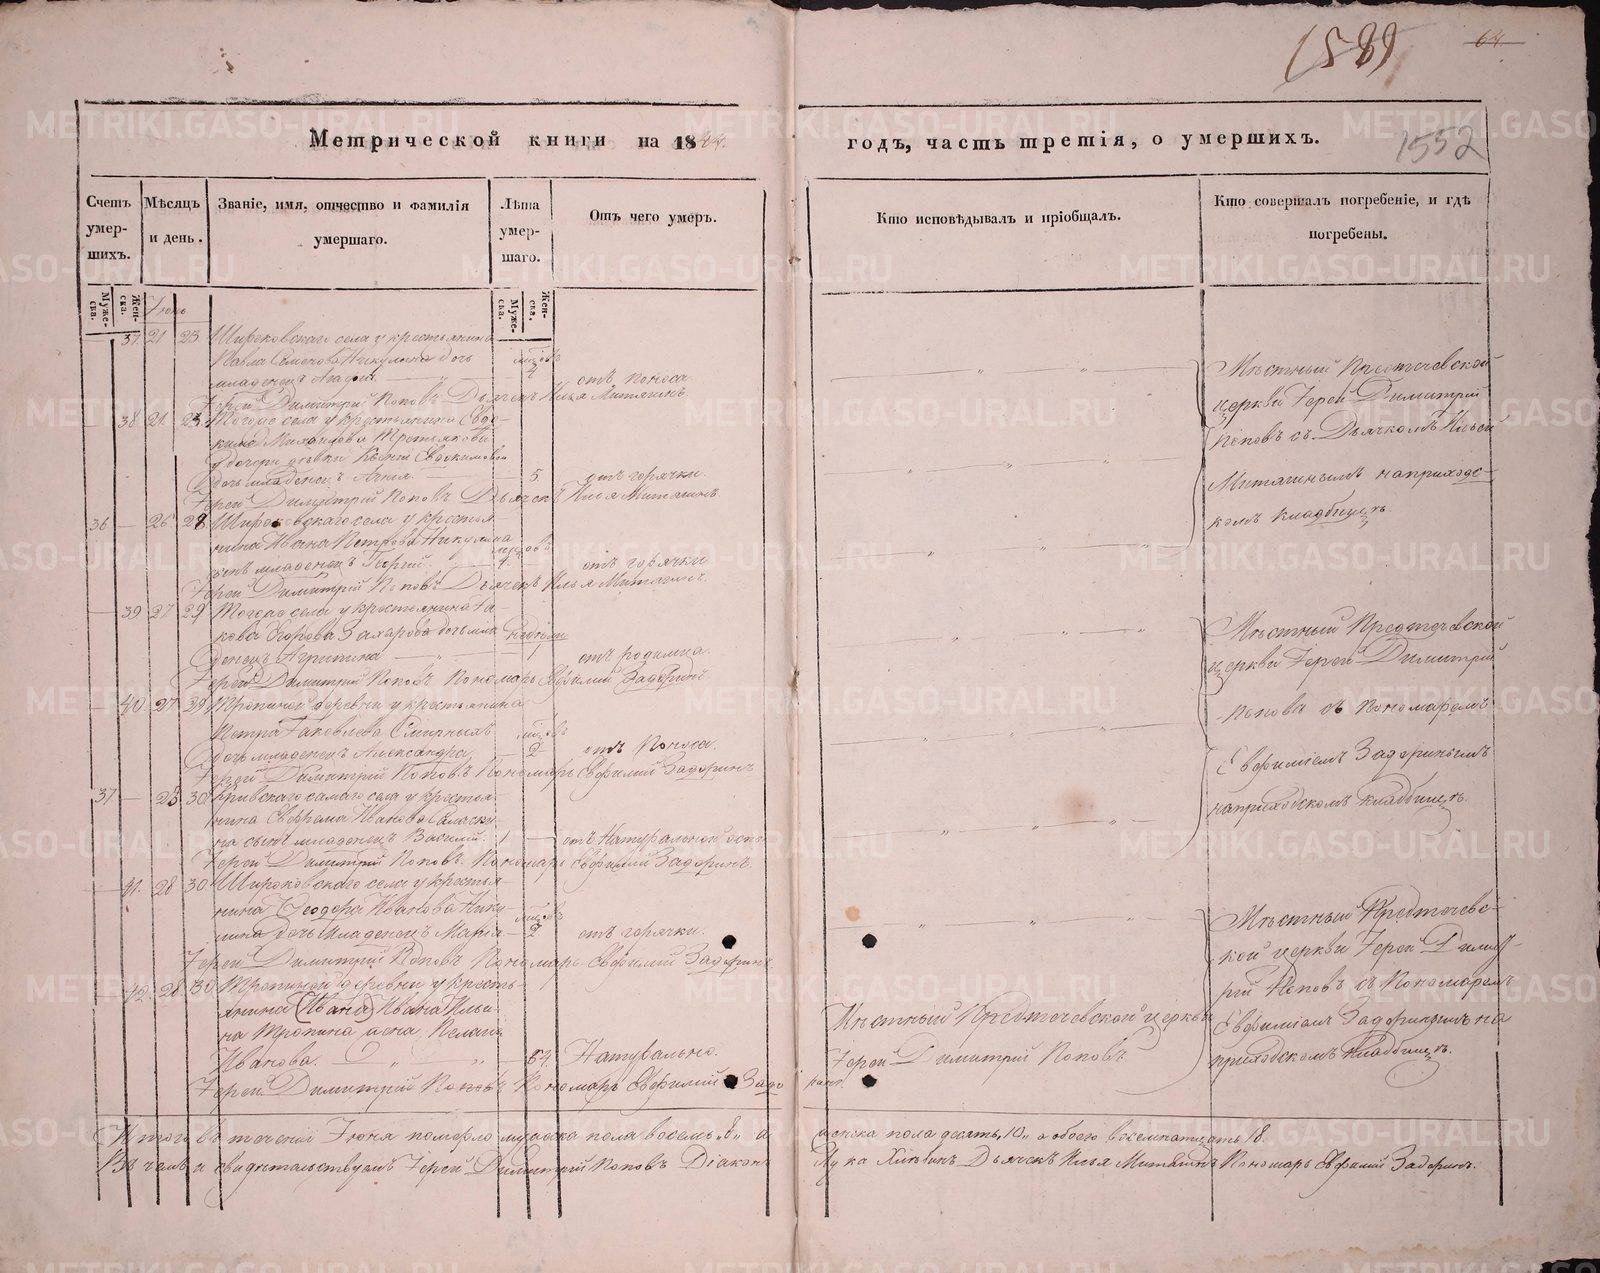 (589)
64.
Метрической книги на 1844. годъ, часть третія, о умершихъ.
1552
Счетъ умер- шихъ.
Мѣсяцъ и день.
Званіе, имя, отчество и фамилія умершаго.
Лѣта умер- шаго.
Отъ чего умеръ.
Кто исповѣдывалъ и пріобщалъ.
Кто совершалъ погребеніе, и гдѣ погребены.
Муже- ска.
Жен- ска.
Муже- ска.
Жен- ска.
Іюнь
37 21 23 Широковскаго села у крестьянина
Павла Семенова Никулина дочь
младенецъ Агафія отъ поноса
Іерей Димитрій Поповъ Дьячекъ Илья Митягинъ
38 21 23 Тогоже села у крестьянина Евдо-
кима Михайлова Третьякова
дочери девки Ксеніи Евдокимовой
дочь младенецъ Анна 5 отъ горячки
Іерей Димитрій Поповъ Дьячекъ Илья Митягинъ
36 26 28 Широковскаго села у крестья-
нина Ивана Петрова Никулина
сынъ младенецъ отъ горячки
Іерей Димитрій Поповъ Дьячекъ Илья Митягинъ.
39 27 29 Тогоже села у крестьянина Іа-
кова Егорова Захарова дочь мла- недѣли
денецъ Агрипина 1 отъ родимца.
Іерей Димитрій Поповъ Пономарь Евфимій Задоринъ
40 27 29 Тропиной деревни у крестьянина
Петра Іаковлева Смирныхъ
дочь младенецъ Александра 2 отъ поноса.
Іерей Димитрій Поповъ Пономарь Евфимій Задоринъ
37 28 30 самаго села у крестья-
нина Ефрема Иванова
на сынъ младенецъ Василій 1 отъ Натуральной оспы
Іерей Димитрій Поповъ. Пономарь Евфимій Задоринъ.
41. 28 30 Широковскаго села у крестья-
нина Ѳеодора Иванова Нику-
лина дочь Младенецъ Марія 2 отъ горячки.
Іерей Димитрій Поповъ Пономарь Евфимій Задоринъ
42. 28 30 Тропиной деревни у кресть-
янина (Ивана) Ивана Ильи-
на Тропина жена Пелагія
Иванова. 64. Натурально.
Іерей Димитрій Поповъ Пономарь Евфимій Задо ринъ.
Мѣстный Предтечевской церкви
Іерей Димитрій Поповъ
Мѣстный Предтечевской
церкви Іерей Димитрій
Поповъ съ Дьячкомъ Ильей
Митягинымъ наприходс-
комъ кладбищѣ.
Мѣстный Предтечевской
церкви Іерей Димитрій
Попова съ Пономаремъ
Евфиміемъ Задоринымъ
наприходскомъ кладбищѣ.
Мѣстный Предтечевс-
кой церкви Іерей Димит-
рій Поповъ съ Пономаремъ
Евфиміемъ Задоринымъ на
приходскомъ кладбищѣ.
Итого въ теченіи Іюня померло мужеска пола восемь „8„ а женска пола десять, 10„ а обоего восемнатцать 18.
Въ чемъ и свидѣтельствуемъ Іерей Димитрій Поповъ Діаконъ Лука Хлѣбинъ Дьячекъ Илья Митягинъ Пономарь Евфимій Задоринъ.
METRIKI.GASO-URAL.RU